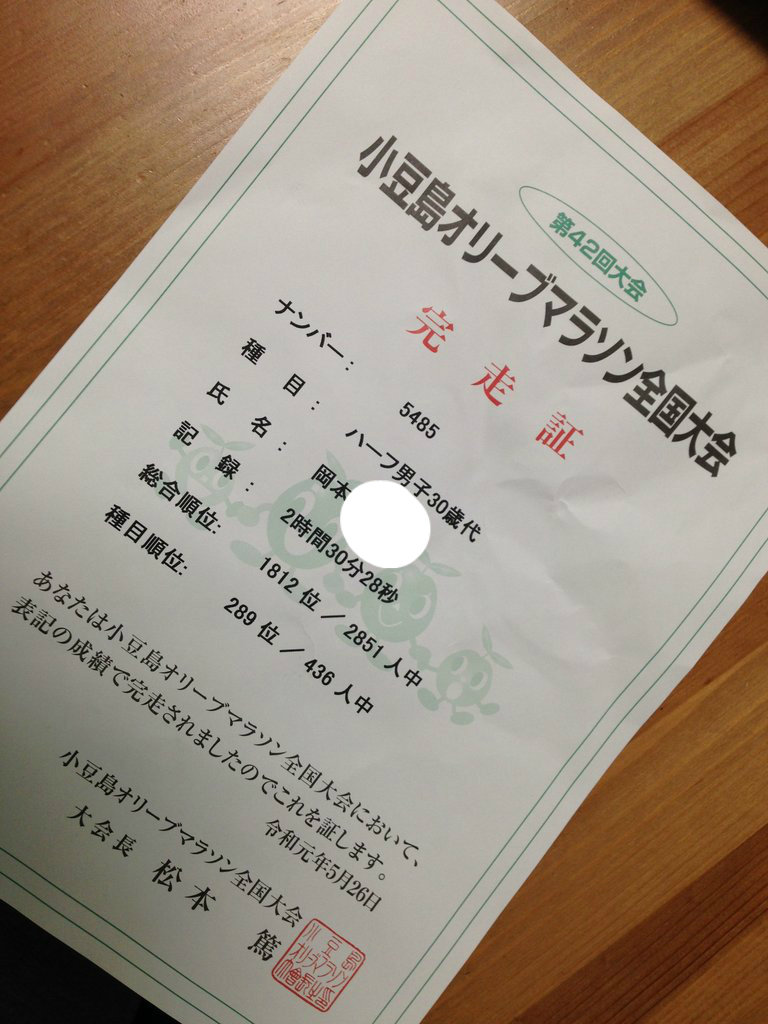 第42回大会
小豆島オリーブマラソン全国大会
完走証
ナンバー： 5485
種目： ハーフ男子30歳代
氏名： 岡本
記録： 2時間30分28秒
総合順位: 1812位／2851人中
種目順位: 289位／436人中
あなたは小豆島オリーブマラソン全国大会において、
表記の成績で完走されましたのでこれを証します。
令和元年5月26日
小豆島オリーブマラソン全国大会
大会長 松本 篤